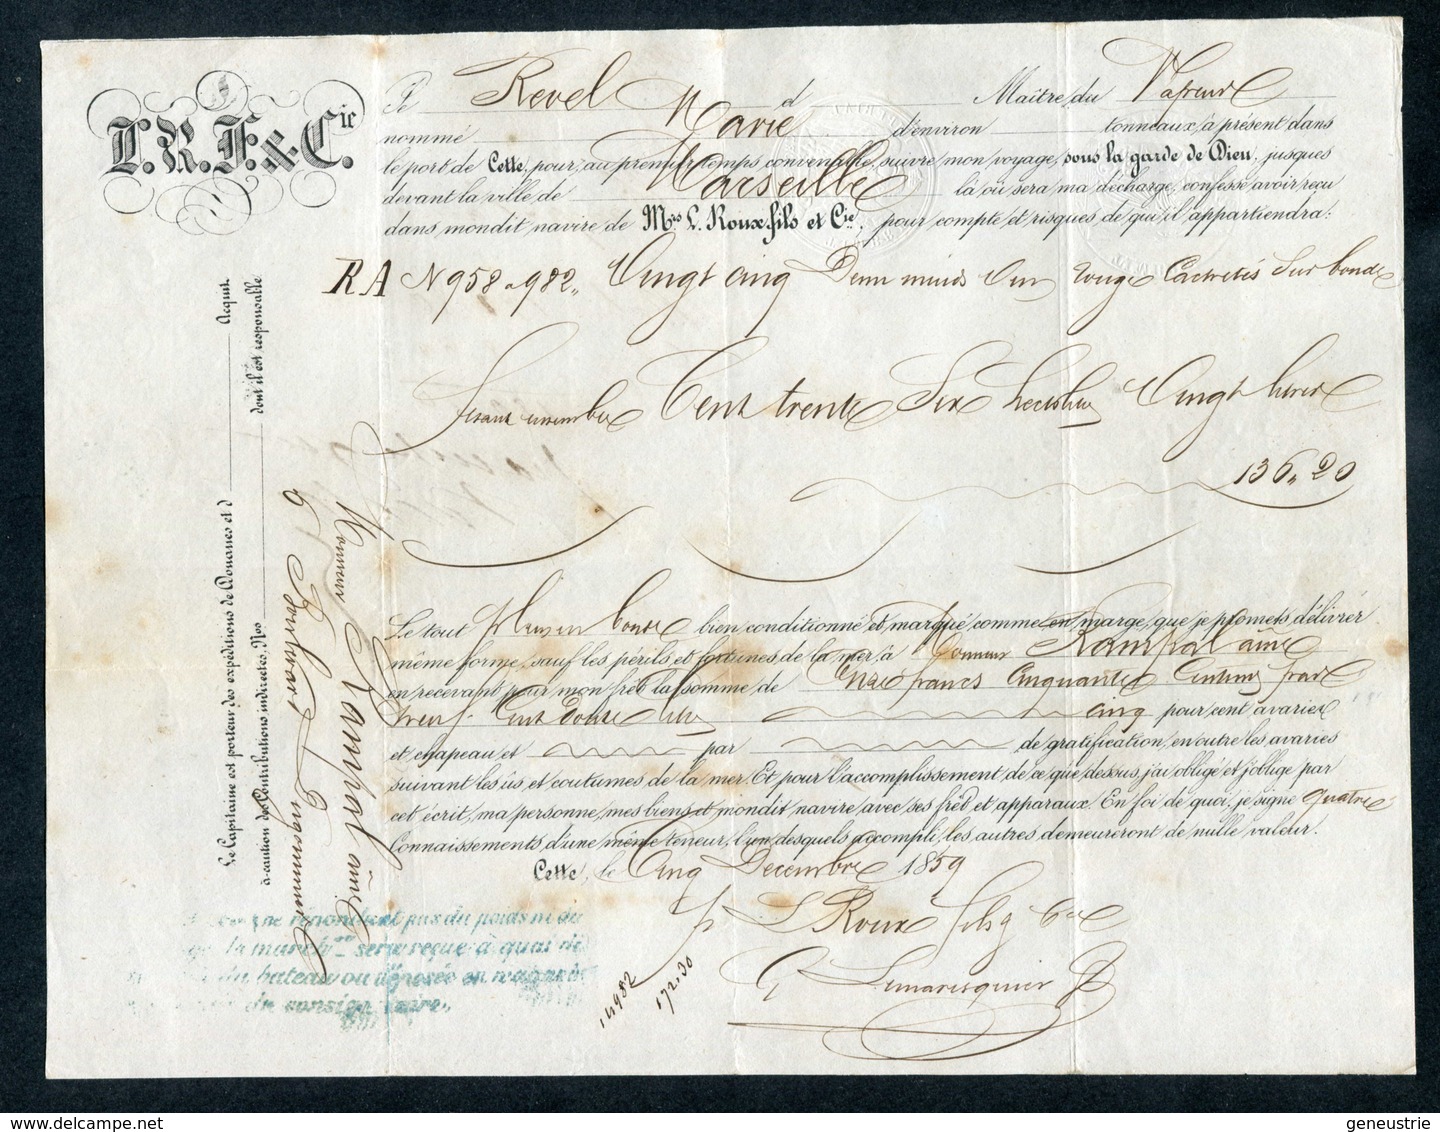 L.R.F. & Cie
Je Revel d Maître du Vapeur
nommé Marie d'environ tonneaux, à présent dans
le port de Cette, pour, au premier temps convenable, suivre mon voyage, sous la garde de Dieu, jusques
devant la ville de Marseille là où sera ma décharge, confesse avoir reçu
dans mondit navire de Mrs L. Roux fils et Cie, pour compte et risques de qui il appartiendra:
RA N 958 a 982,, Vingt cinq Demi muids Vin rouge Cachetés Sur bonde
Jeaugeant ensemble Cent trente Six hectolitres Vingt litres
136,,20
Le tout plein en bonde bien conditionné et marqué comme en marge, que je promets délivrer
même forme, sauf les périls et fortunes de la mer, à Monsieur Rampal aîné
en recevant pour mon frêt la somme de Onze francs Cinquante Centimes par
neuf Cent douze litres cinq pour cent avaries
et chapeau et par de gratification, en outre les avaries
suivant les us et coutumes de la mer. Et pour l'accomplissement de ce que dessus, j'ai obligé et j'oblige par
cet écrit, ma personne, mes biens et mondit navire avec ses frêt et apparaux. En foi de quoi, je signe quatre
Connaissements d'une même teneur, l'un desquels accompli, les autres demeureront de nulle valeur.
Cette, le Cinq Decembre 1859
p L Roux fils & Cie
Lemaresquier
14982
172.30
Le Capitaine est porteur des expéditions de Douanes et d Acquit
à-caution des Contributions indirectes, Nos dont il est responsable
Monsieur Rampal aîné
6 Boulevart
ne répondent pas du poids ni du
la march.se sera reçue à quai
du bateau ou déposée en magasin
du consignataire.
geneustrie